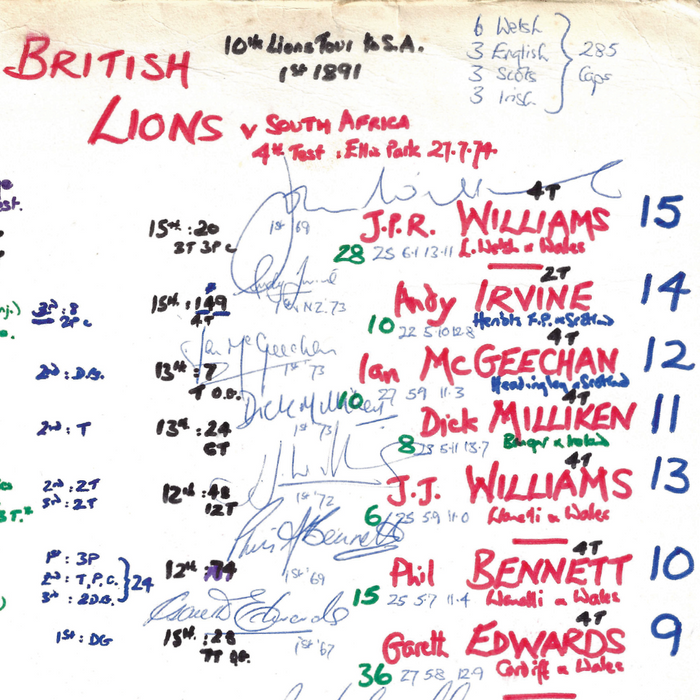 BRITISH
LIONS v SOUTH AFRICA
10th Lions Tour to S.A.
1st 1891
6 Welsh
3 English
3 Scots
3 Irish
285
Caps
4th Test : Ellis Park 27.7.74
4T
15th : 20
3T 3P c
1st '69
J.P.R. WILLIAMS 15
28 25 6·1 13·11 L. Welsh & Wales
2T
3rd : 8
2P c
15th : 149
4T
Andy Irvine
1st v N.Z. '73
Andy IRVINE 14
10 22 5·10 12·8 Heriots F.P. & Scotland
4T
2nd : D.G.
13th : 7
T D.G.
Ian McGeechan
1st '73
Ian McGEECHAN 12
10 27 5 9 11·3 Headingley & Scotland
4T
2nd : T
13th : 24
6T
Dick Milliken
1st '73
Dick MILLIKEN 11
8 23 5·11 13·7 Bangor & Ireland
4T
2nd : 2T
3rd : 2T
12th : 48
12T
1st '72
J.J. WILLIAMS 13
6 25 5 9 11·0 Llanelli & Wales
4T
1st : 3P
2nd : T.P.C.
3rd : 2D.G.
24
12th : 74
Phil Bennett
1st '69
Phil BENNETT 10
15 25 5·7 11·4 Llanelli & Wales
4T
1st : DG
15th : 28
7T DG.
Gareth Edwards
1st '67
Gareth EDWARDS 9
36 27 5 8 12·9 Cardiff & Wales